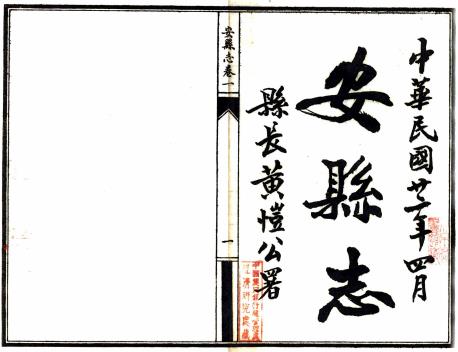 中華民國廿二年四月
安縣志
縣長黃愷公署
安縣志卷一
一